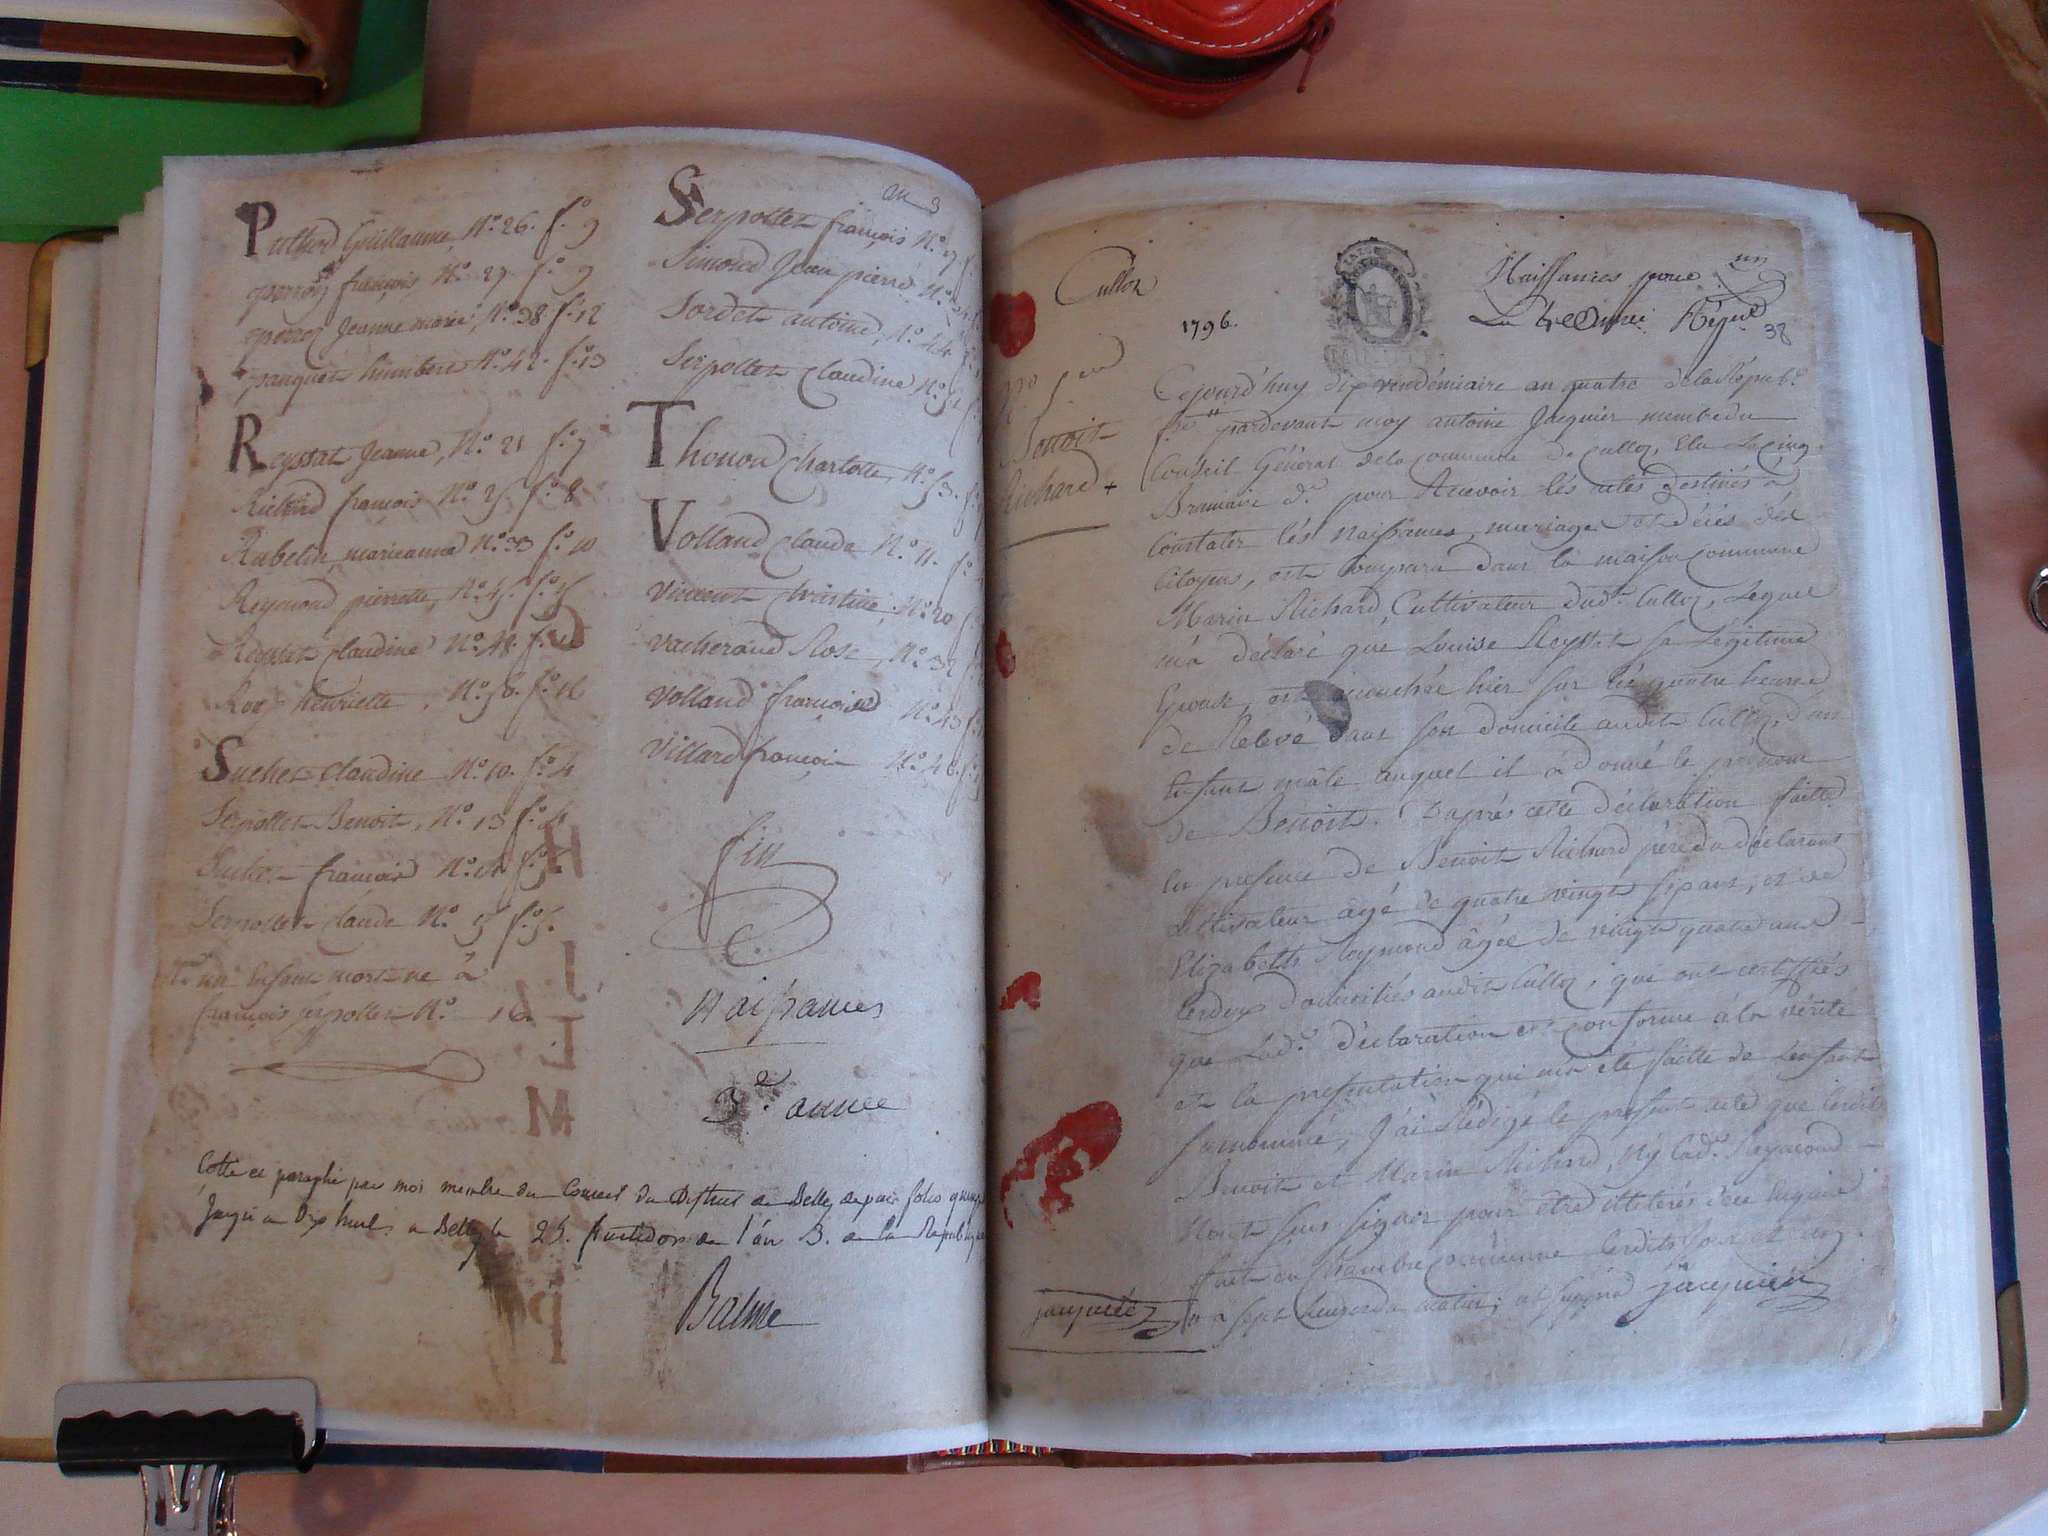 an 3
Guillaume, N.º 26. f.º 9
françois N.º 27. f.º 9
Jeanne marie, N.º 38 f.º 12
humbert N.º 42. f.º 13
Reystat Jeanne, N.º 21 f.º 7
Richard françois N.º 25. f.º 8
Rubelin marieanne N.º 33 f.º 10
Reymond pierrette, N.º 45. f.º
Reystat Claudine N.º 48. f.º
Roy henriette, N.º 58. f.º 16
Suchet Claudine N.º 10. f.º 4
Serpollet Benoit, N.º 13 f.º 4
Suchet françois N.º f.º
Serpollet Claude N.º f.º 5.
un Enfant mort né à
françois Serpollet N.º 16.
Serpollet françois N.º
Simond Jean pierre N.º
Sordet antoine, N.º 44.
Serpollet Claudine N.º
Thonon Charlotte, N.º 53.
Volland Claude N.º 11.
Vincent Christine, N.º 20
Vacherand Rose, N.º 32
Volland françoise N.º 43
Villard françois N.º 46.
fin
Naissances
3.e année
Cotté et paraphé par moi membre du Conseil du District de Belley depuis folio
Jusqu'a Dix huit a Belley le 25. fructidor de l'an 3. de la Republique
Balme
Culloz
1796.
Naissances pour un
38
Benoit
Richard +
Cejourd'huy dix vendémiaire an quatre de la Répub.e
pardevant moy antoine Jacquier membre du
Conseil Général de la Commune de Culloz, Elu Le Cinq
Brumaire d.r pour Recevoir lés actes destinés à
Constater lés Naissances, mariages et décés dés
Citoyens, est Comparu dans la maison Commune
Marin Richard, Cultivateur dud.t Culloz, Lequel
m'a déclaré que Louise Reystat sa Légitime
Epouse, est accouchée hier sur lés quatre heures
de Relevé dans son domicile audit Culloz, d'un
Enfant mâle auquel il à donné le prénom
de Benoit. D'aprés cette déclaration faitte
En presence de Benoit Richard pére du déclarant
Cultivateur agé de quatre vingt six ans, et de
Elizabeth Reymond âgée de vingt quatre ans
lesdeux domiciliés audit Culloz, qui ont certiffiés
que Lad.e déclaration est conforme à la vérité
et la presentation qui m'a été faitte de l'enfant
sunommé, J'ai Rédigé le present acte que lesdits
Benoit et Marin Richard, Ny Lad.e Reymond
N'ont sçus signer pour être illiterés de ce Enquis
fait en Chambre Commune lesdits Jour et an
à sept heures du matin; et signé Jacquier
Jacquier